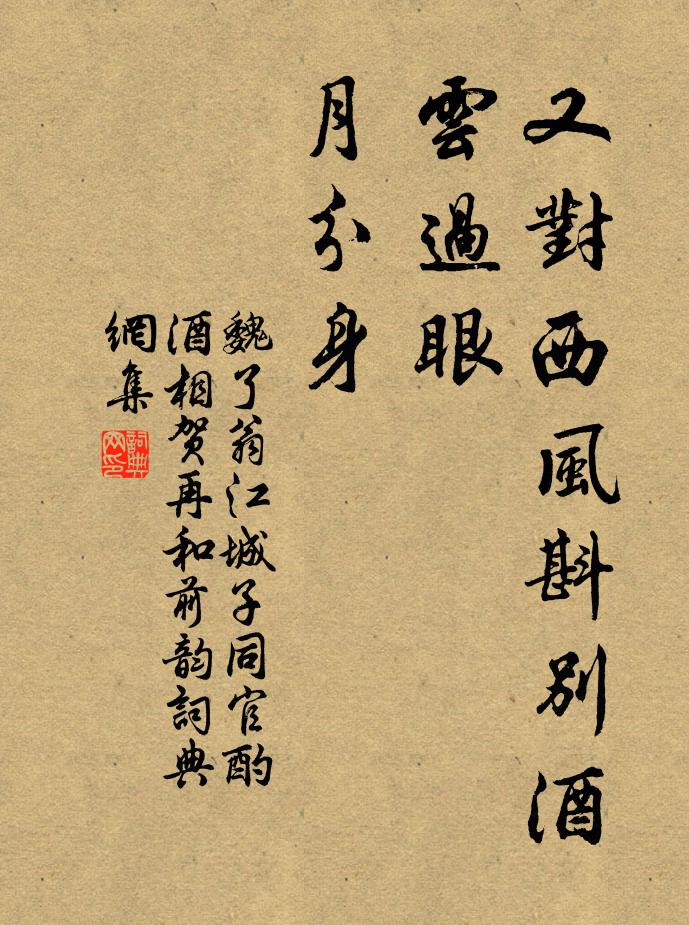 又對西風斟別酒
雲過眼
月分身
魏了翁江城子同官酌
酒相賀再和前韵詞典
網集
詞典
网印